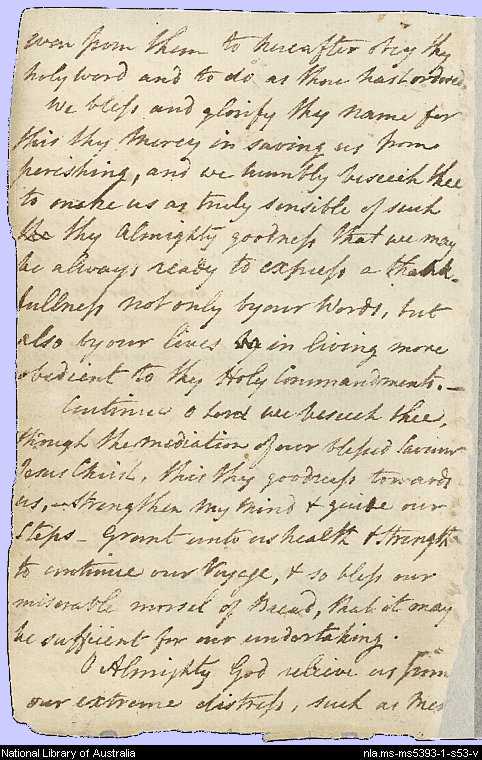 even from them to hereafter obey thy
holy word and to do as thou hast ordered
We bless and glorify thy name for
this thy Mercy in saving us from
perishing, and we humbly beseech thee
to make us as truly sensible of such
thy Almighty goodness that we may
be always ready to express a thank-
fullness not only by our Words, but
also by our lives in living more
obedient to thy Holy Commandments. —
Continue O Lord we beseech thee,
through the mediation of our blessed Saviour
Jesus Christ, this thy goodness towards
us, — strengthen my mind & guide our
Steps — Grant unto us health & strength
to continue our Voyage, & so bless our
miserable morsel of Bread, that it may
be sufficient for our undertaking.
O Almighty God relieve us from
our extreme distress, such as Men
National Library of Australia
nla.ms-ms5393-1-s53-v